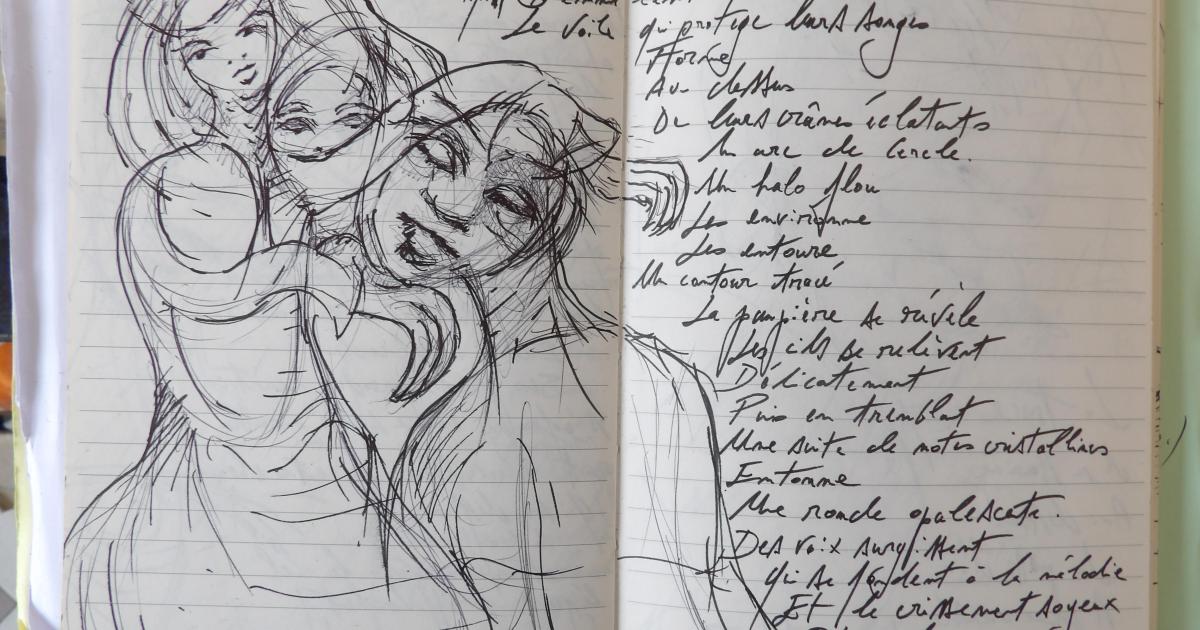 Le voile
qui protège leurs songes
Forme
Au dessus
De leurs crânes éclatants
Un arc de cercle.
Un halo flou
Les environne
Les entoure
Un contour tracé
La paupière se révèle
Les cils se relèvent
Délicatement
Puis en tremblant
Une suite de notes cristallines
Entonne
Une ronde opalescente.
Des voix surgissent
Qui se fondent à la mélodie
Et le crissement soyeux